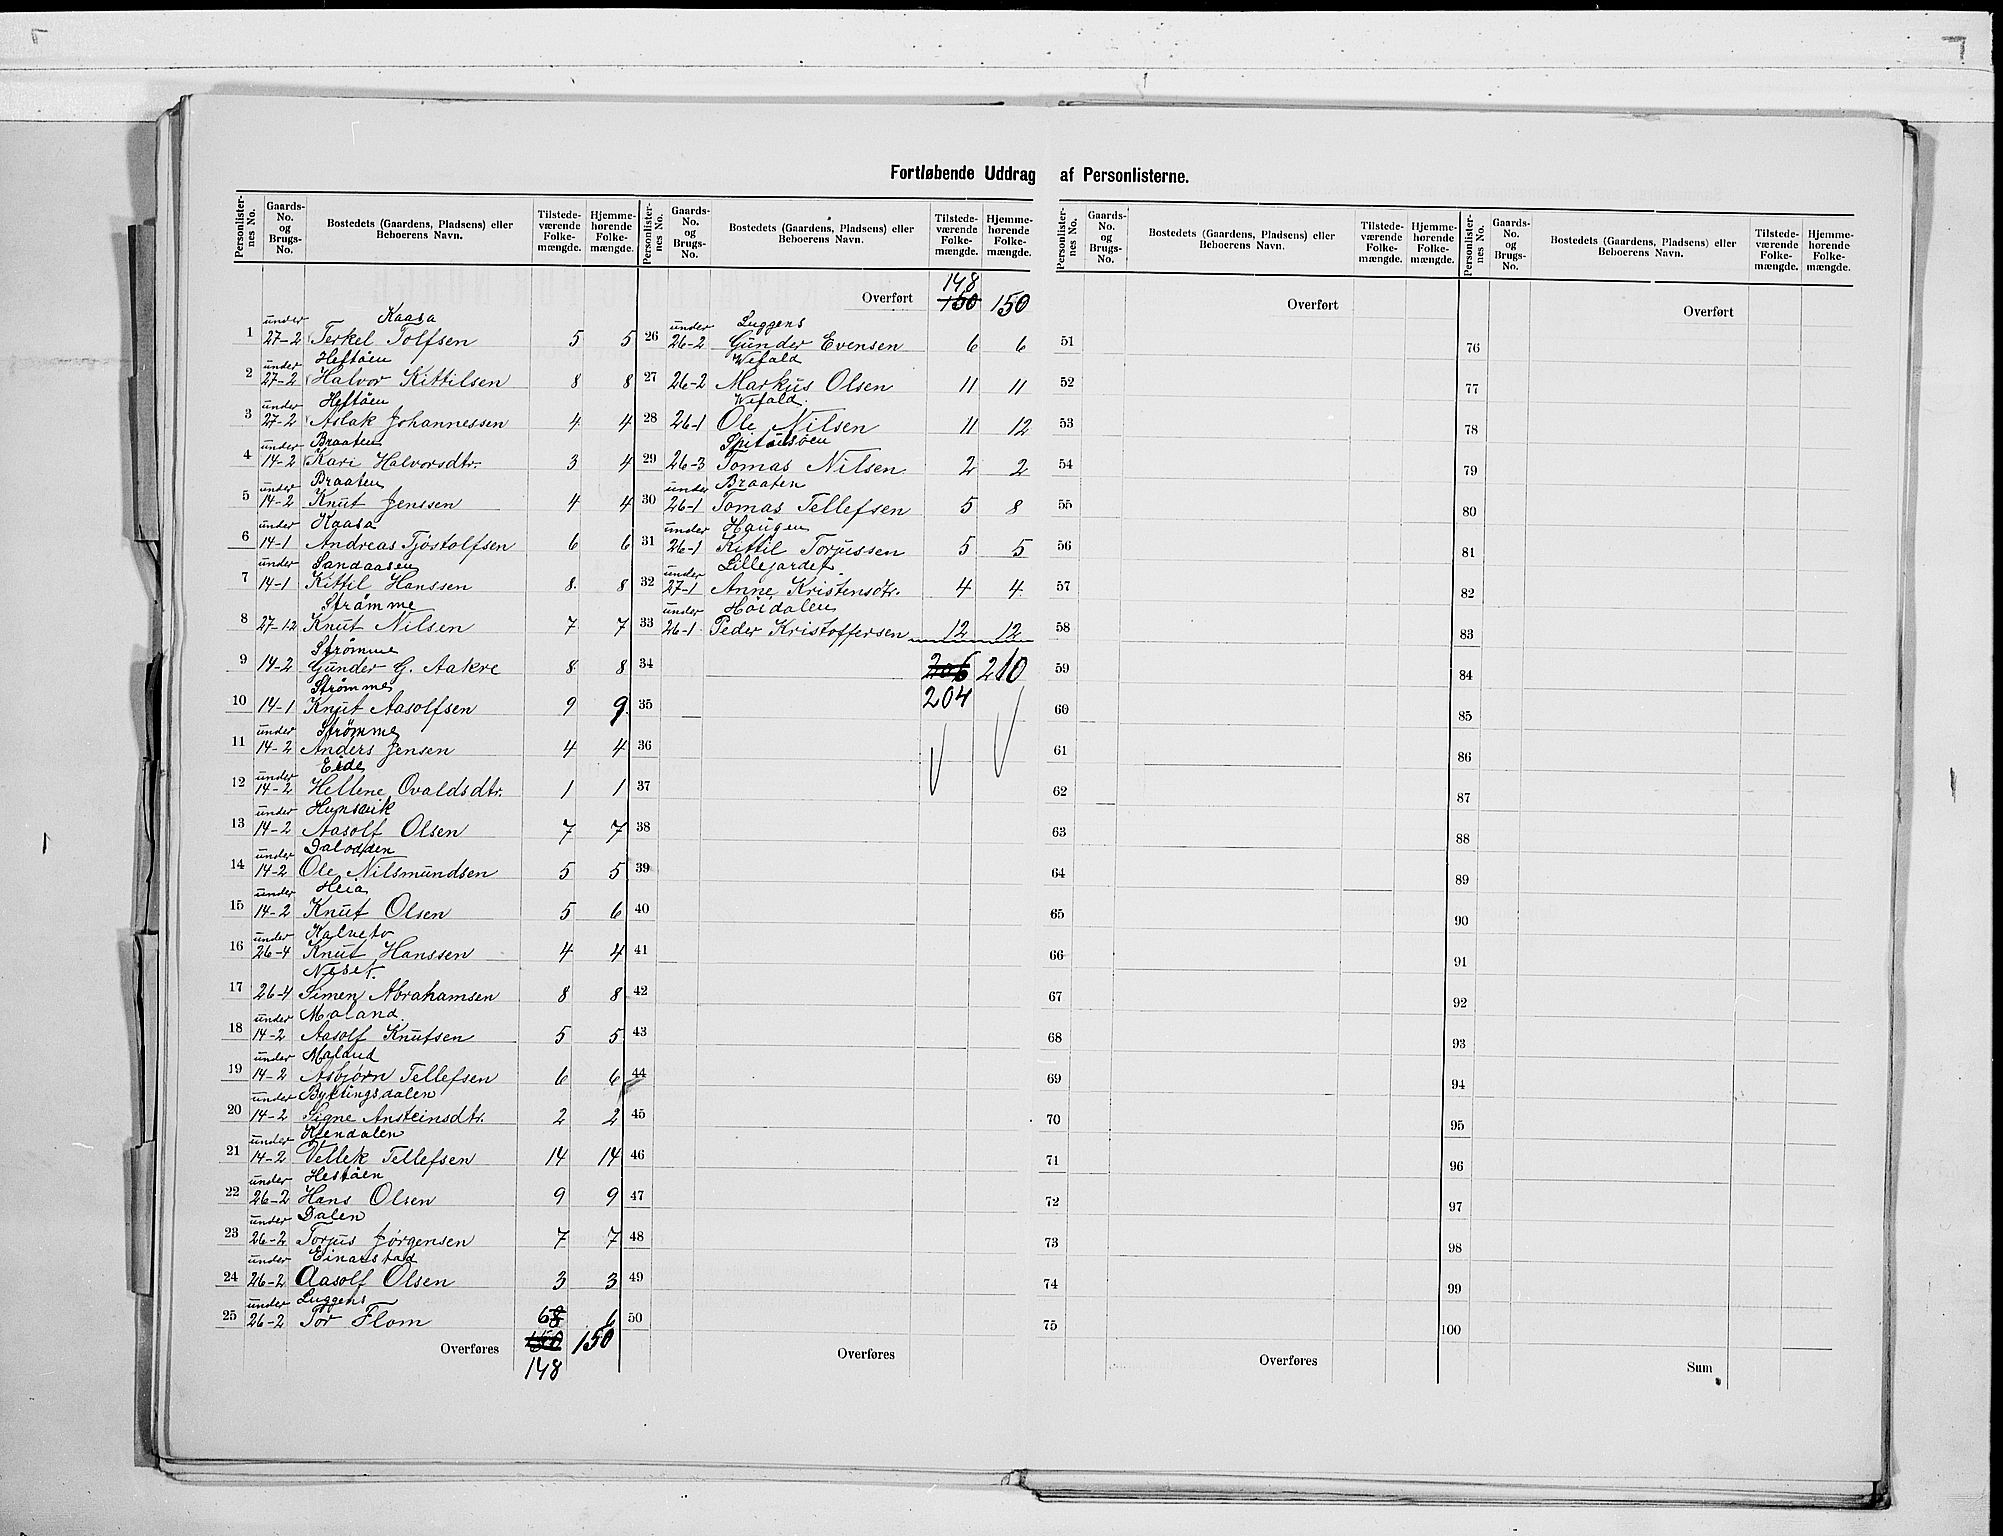 Fortløbende Uddrag af Personlisterne.
Personlisternes No. Gaards-No. og Brugs-No. Bostedets (Gaardens, Pladsens) eller Beboerens Navn. Tilstedeværende Folkemængde. Hjemmehørende Folkemængde.
under Kaasa
1 27-2 Terkel Tolfsen 5 5
under Heftøen
2 27-2 Halvor Kittilsen 8 8
under Heftøen
3 27-2 Aslak Johannessen 4 4
under Braaten
4 14-2 Kari Halvorsdtr. 3 4
under Braaten
5 14-2 Knut Jenssen 4 4
under Kaasa
6 14-1 Andreas Tjöstolfsen 6 6
under Sandaasen
7 14-1 Kittil Hanssen 8 8
Strömme
8 27-12 Knut Nilsen 7 7
Strömme
9 14-2 Gunder G. Aakre 8 8
Strömme
10 14-1 Knut Aasolfsen 9 9
under Strömme
11 14-2 Anders Jensen 4 4
under Eide
12 14-2 Hellene Ovaldsdtr. 1 1
under Hunsvik
13 14-2 Aasolf Olsen 7 7
under Dalodden
14 14-2 Ole Nilsmundsen 5 5
under Heia
15 14-2 Knut Olsen 5 6
under Kalveto
16 26-4 Knut Hanssen 4 4
Neset.
17 26-4 Simen Abrahamsen 8 8
under Moland.
18 14-2 Aasolf Knutsen 5 5
under
19 14-2 Asbjørn Tellefsen 6 6
under Byttingsdalen
20 14-2 Signe Ansteinsdtr. 2 2
under Kjendalen
21 14-2 Vellek Tellefsen 14 14
under Hestøen
22 26-2 Hans Olsen 9 9
under Dalen
23 26-2 Torjus Jørgensen 7 7
under Einarstad
24 26-2 Aasolf Olsen 3 3
under Luggens
25 26-2 Tor Flom 6
Overføres 150 150
148
Personlisternes No. Gaards-No. og Brugs-No. Bostedets (Gaardens, Pladsens) eller Beboerens Navn. Tilstedeværende Folkemængde. Hjemmehørende Folkemængde.
148
Overført 150 150
under Luggens
26 26-2 Gunder Evensen 6 6
Wefald
27 26-2 Markus Olsen 11 11
Wefald.
28 26-1 Ole Nilsen 11 12
29 26-3 Tomas Nilsen 2 2
under Braaten
30 26-1 Tomas Tellefsen 5 8
under Haugen
31 26-1 Kittil Torjussen 5 5
under Lillejordet
32 27-1 Anne Kristensdtr. 4 4
under Höidalen
33 26-1 Peder Kristoffersen 12 12
34 206 210
204
35
36
37
38
39
40
41
42
43
44
45
46
47
48
49
50
Overføres
Personlisternes No. Gaards-No. og Brugs-No. Bostedets (Gaardens, Pladsens) eller Beboerens Navn. Tilstedeværende Folkemængde. Hjemmehørende Folkemængde.
Overført
51
52
53
54
55
56
57
58
59
60
61
62
63
64
65
66
67
68
69
70
71
72
73
74
75
Overføres
Personlisternes No. Gaards-No. og Brugs-No. Bostedets (Gaardens, Pladsens) eller Beboerens Navn. Tilstedeværende Folkemængde. Hjemmehørende Folkemængde.
Overført
76
77
78
79
80
81
82
83
84
85
86
87
88
89
90
91
92
93
94
95
96
97
98
99
100
Sum